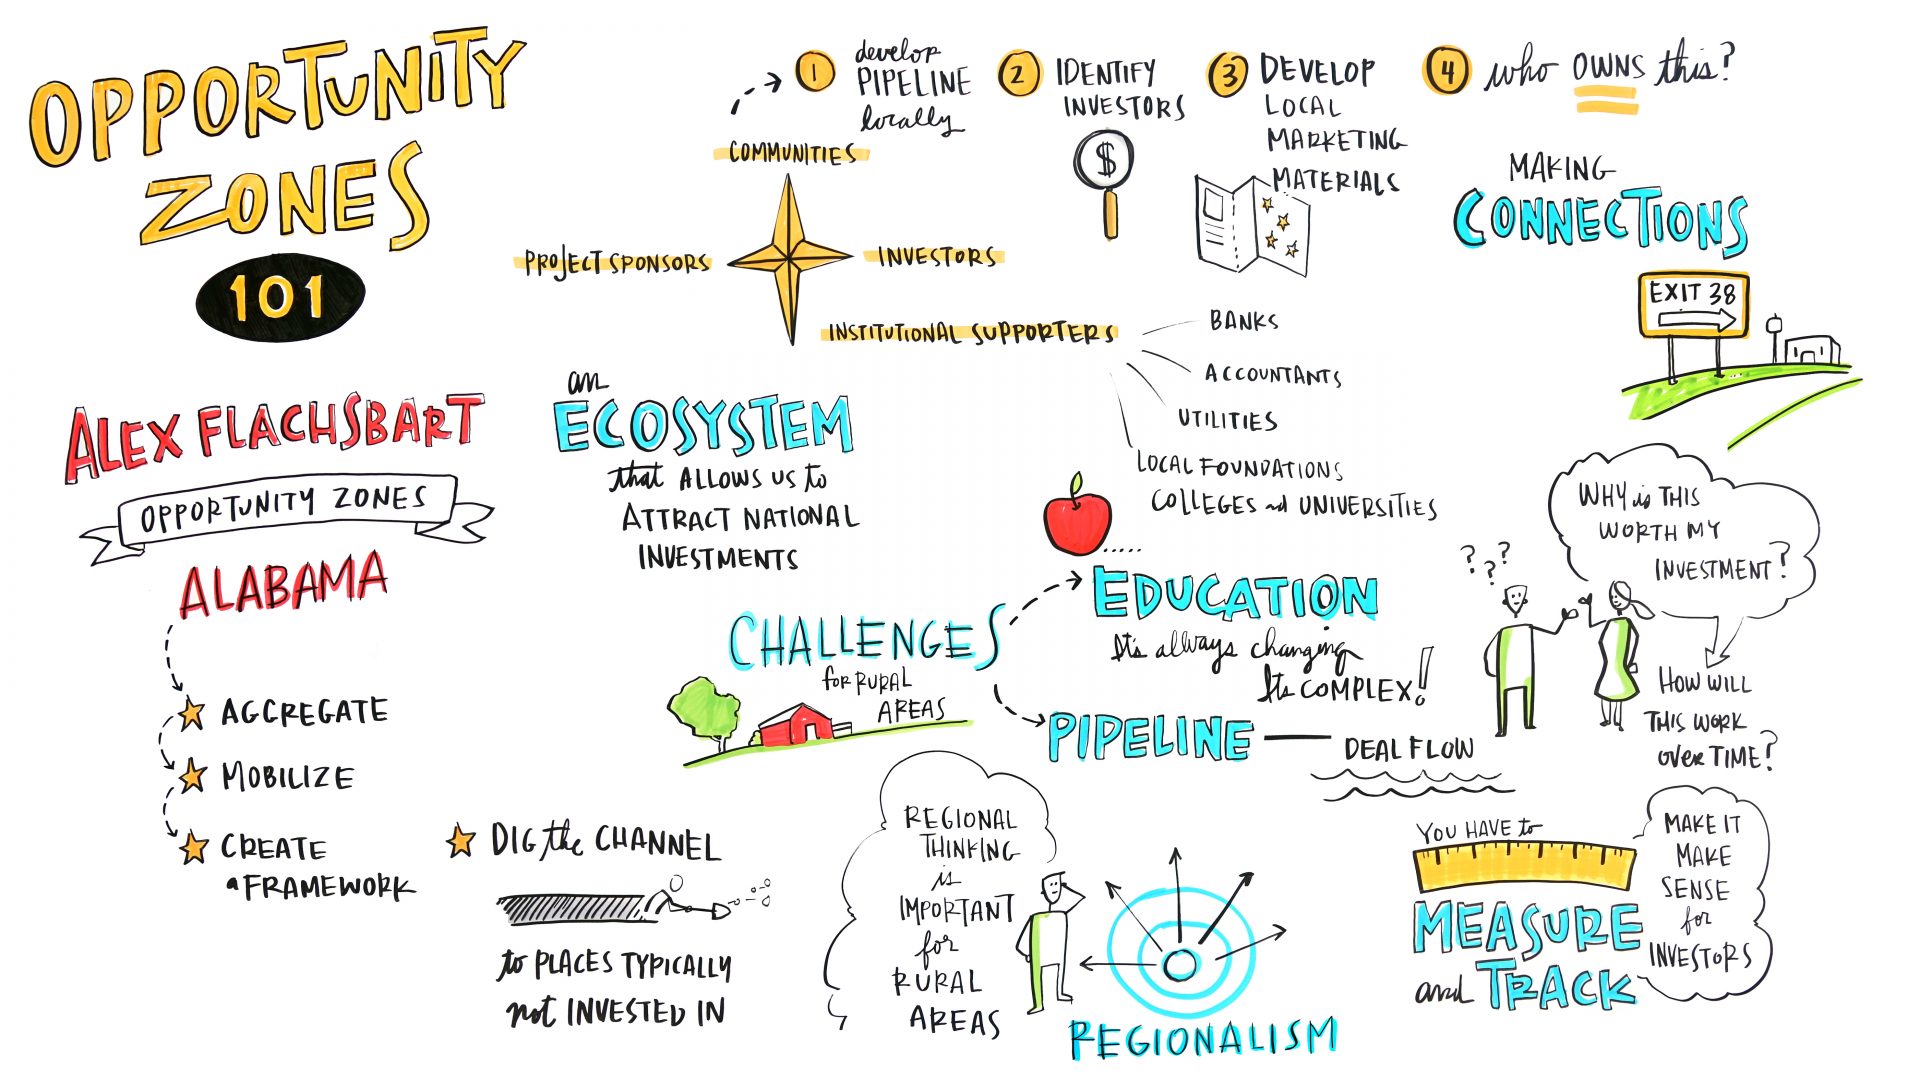 OPPORTUNITY
ZONES
101
ALEX FLACHSBART
OPPORTUNITY ZONES
ALABAMA
AGGREGATE
MOBILIZE
CREATE
a FRAMEWORK
DIG the CHANNEL
to PLACES TYPICALLY
not INVESTED IN
COMMUNITIES
PROJECT SPONSORS
INVESTORS
INSTITUTIONAL SUPPORTERS
BANKS
ACCOUNTANTS
UTILITIES
LOCAL FOUNDATIONS
COLLEGES and UNIVERSITIES
1
develop
PIPELINE
locally
2
IDENTIFY
INVESTORS
$
3
DEVELOP
LOCAL
MARKETING
MATERIALS
4
who OWNS this?
MAKING
CONNECTIONS
EXIT 38
an
ECOSYSTEM
that ALLOWS US to
ATTRACT NATIONAL
INVESTMENTS
CHALLENGES
for RURAL
AREAS
EDUCATION
It's always changing
Its COMPLEX!
PIPELINE
DEAL FLOW
? ? ?
WHY is THIS
WORTH MY
INVESTMENT?
HOW WILL
THIS WORK
over TIME?
REGIONAL
THINKING
is
IMPORTANT
for
RURAL
AREAS
REGIONALISM
YOU HAVE to
MEASURE
and TRACK
MAKE IT
MAKE
SENSE
for
INVESTORS